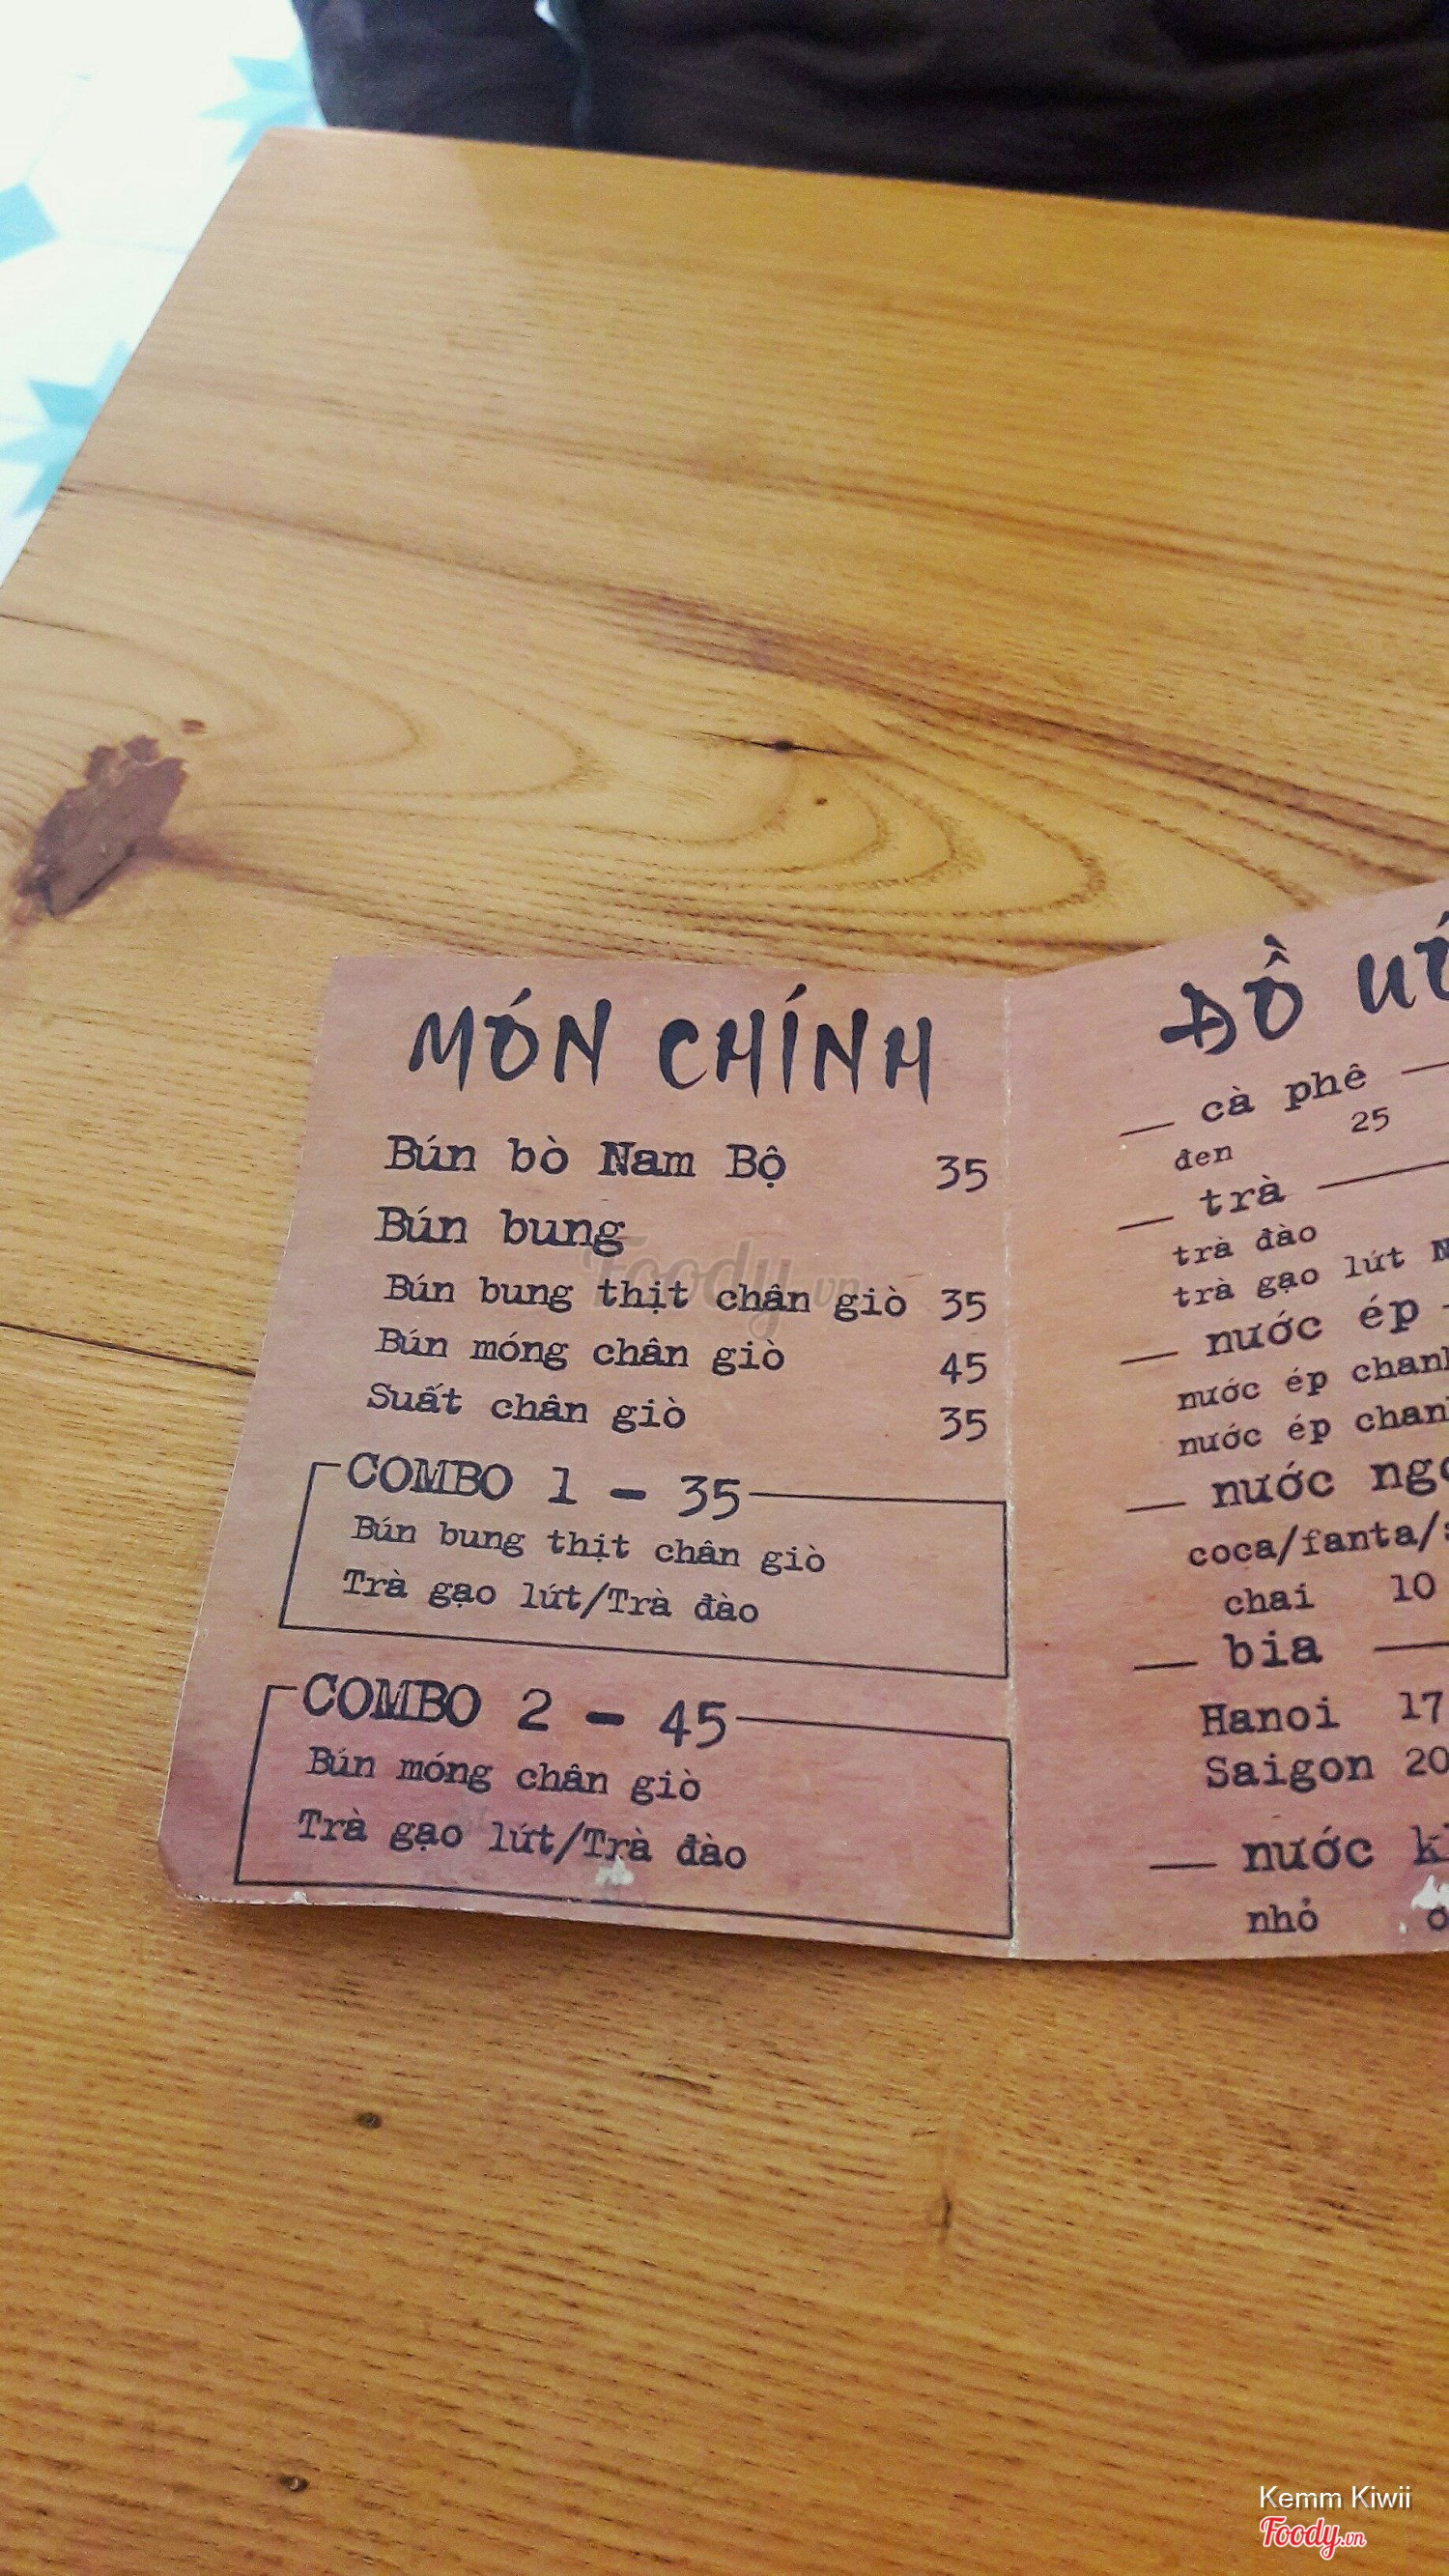 MÓN CHÍNH
Bún bò Nam Bộ 35
Bún bung
Bún bung thịt chân giò 35
Bún móng chân giò 45
Suất chân giò 35
COMBO 1 - 35
Bún bung thịt chân giò
Trà gạo lứt/Trà đào
COMBO 2 - 45
Bún móng chân giò
Trà gạo lứt/Trà đào
ĐỒ
cà phê
đen 25
trà
trà đào
trà gạo lứt
nước ép
nước ép
nước ép
nước
coca/fanta/
chai 10
bia
Hanoi 17
Saigon 20
nước
nhỏ
Foody.vn
Kemm Kiwii
Foody.vn